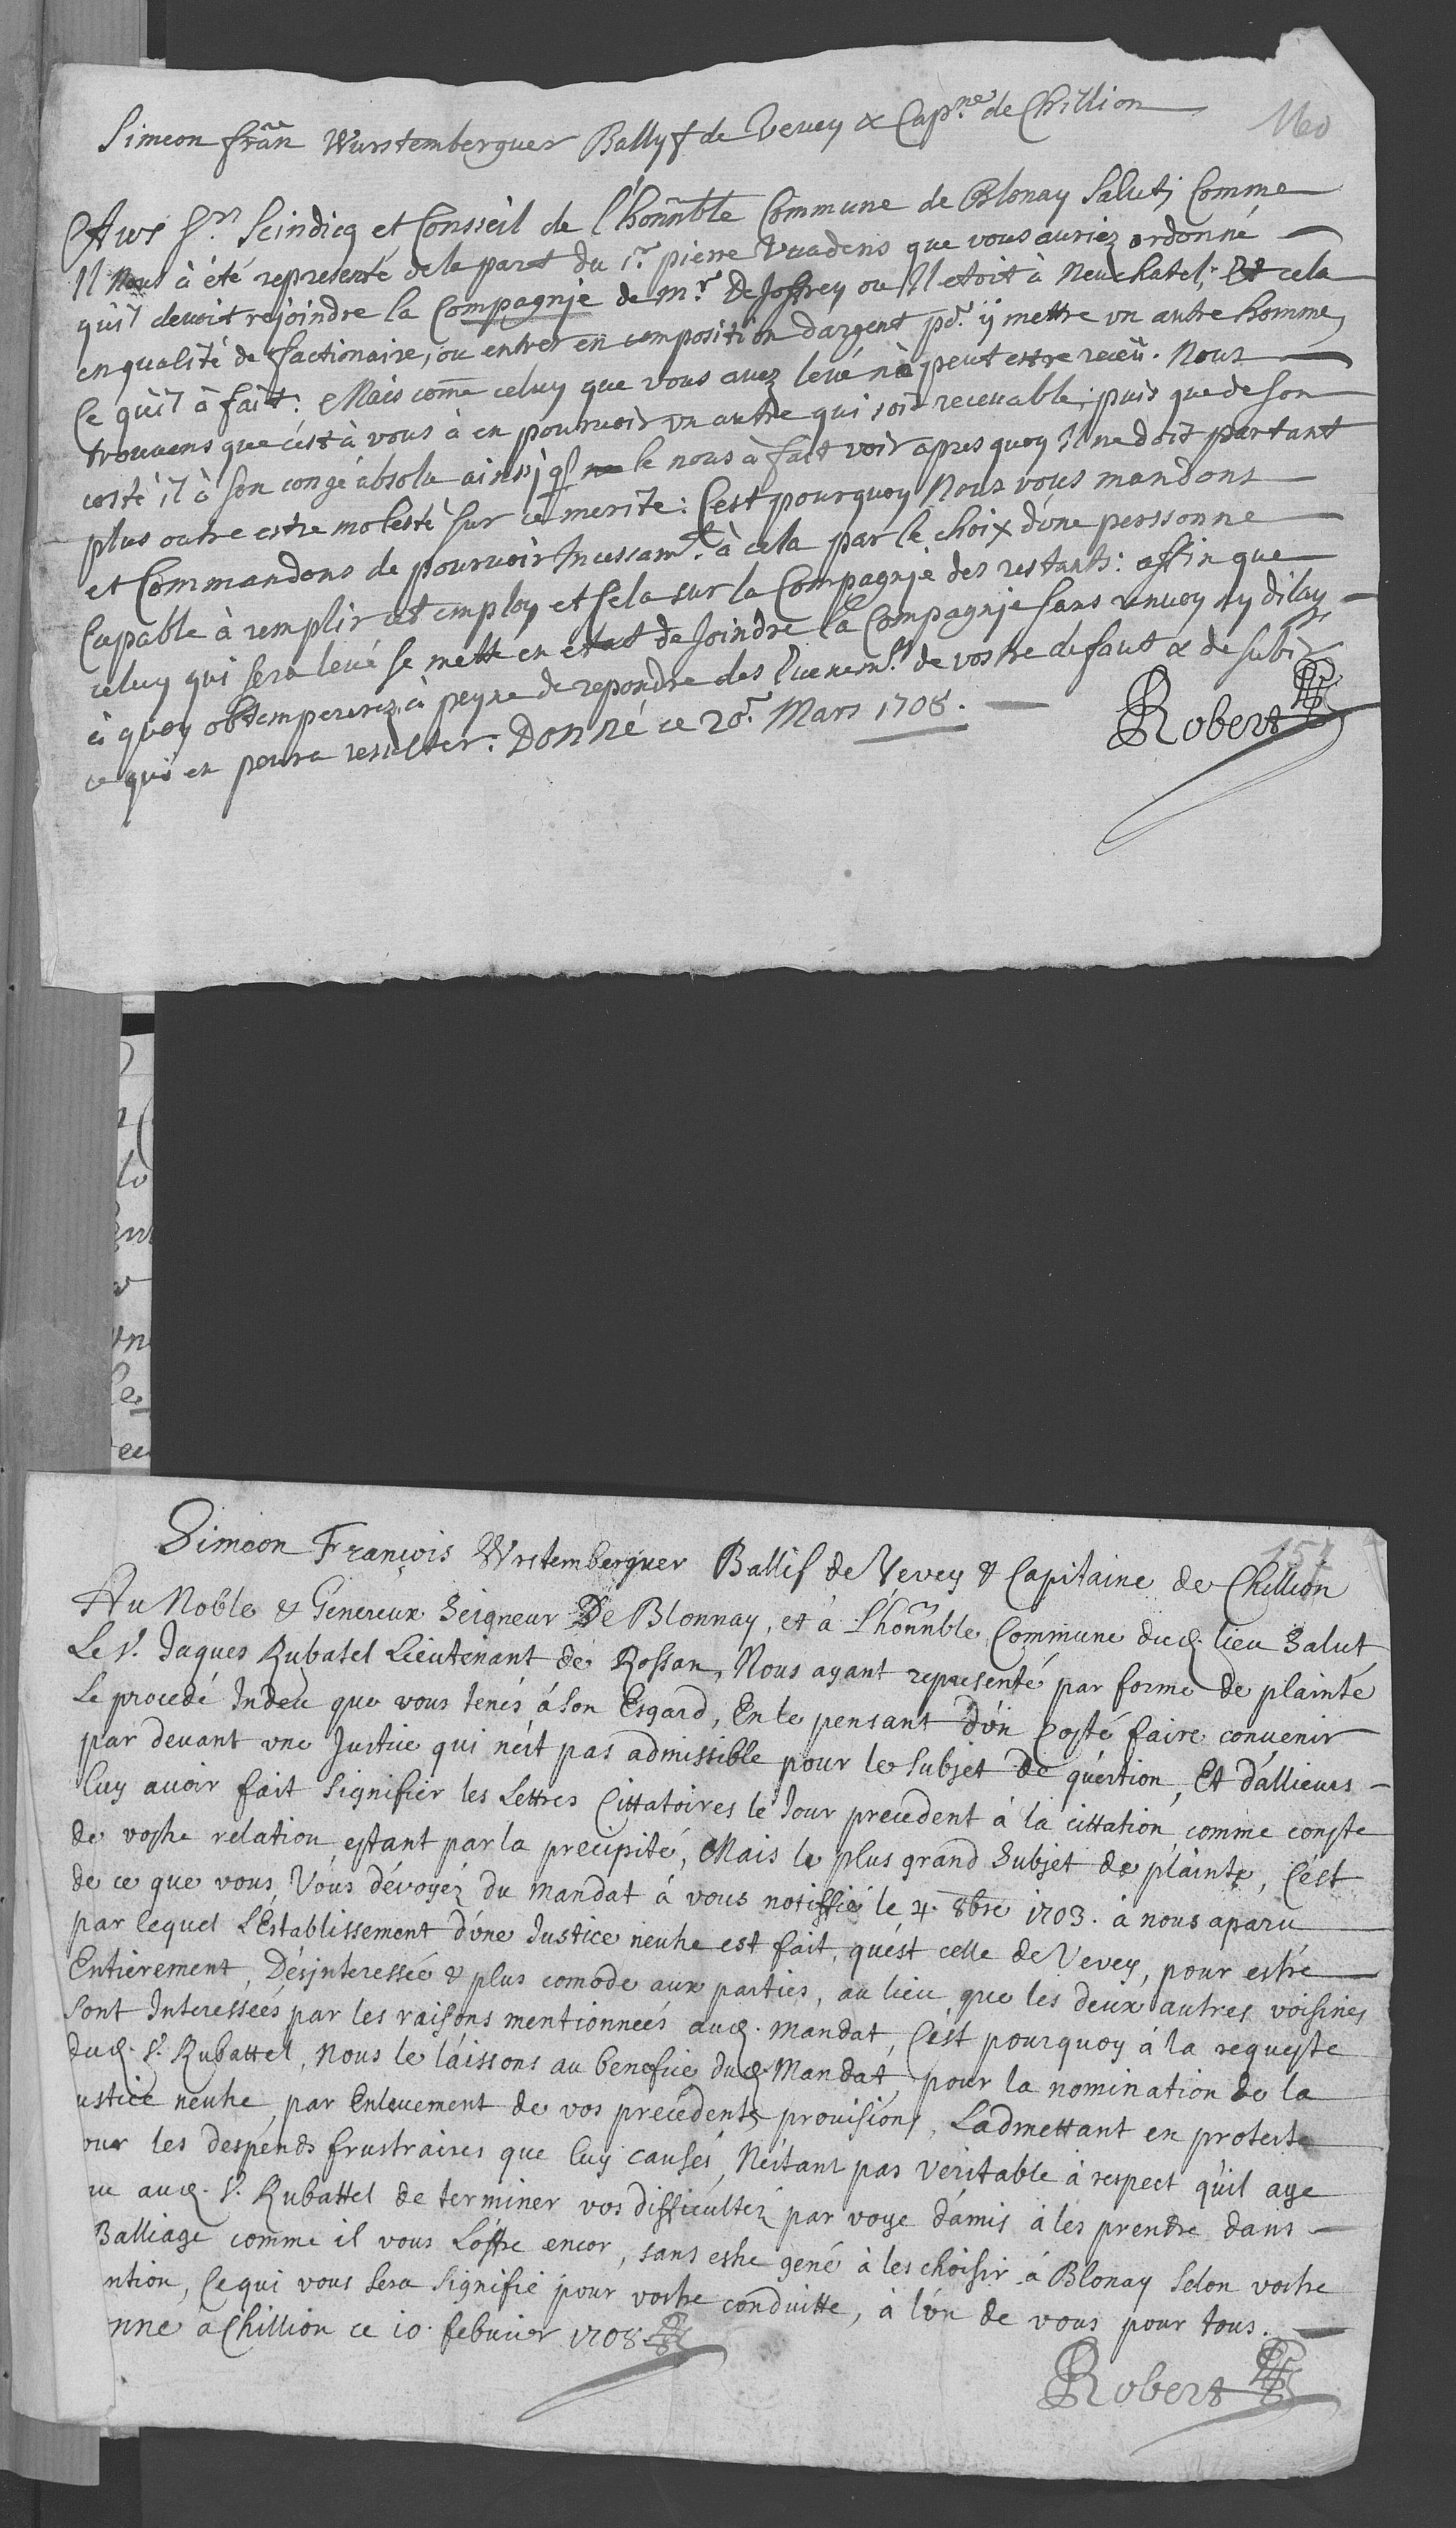 160
Simeon frãn Wurstemberguer Ballyf de Vevey & Cap.ne de Chillion
Aux Srs Scindicq et Consseil de l'honnble Commune de Blonay Salut; Comme
Il Nous à été representé de la part du sr pierre Vuadens que vous auriez ordonné
qu'il devoit rejoindre la Compagnie de mr De Joffrey ou Il etoit à Neuchatel; Et cela
en qualité de factionaire, ou entrer en composition dargent pr. ÿ mettre un autre homme,
Ce qu'il à fait: Mais come celuy que vous avez levé ne peut estre receu. Nous
trouvons que c'est à vous à en pourvoir un autre qui soit recevable; puis que de son
costé il à son congé absolu ainssÿ ql le nous à fait voir apres quoy Il ne doit partant
plus outre estre molesté sur ce merite: C'est pourquoy Nous vous mandons
et Commandons de pourvoir Incessamt. à cela par le choix d'une perssonne
Capable à remplir cet employ et sela sur la Compagnie des restants: affin que
celuy qui sera levé se mette en etat de Joindre la Compagnie sans renvoy ny dilay
à quoy obtempererez à peyne de repondre des Evenemts. de vostre defaut & de subir
ce qui en poura resulter. Donné ce 20e. Mars 1708.
Robert
Simeon François Wrstemberguer Ballif de Vevey & Capitaine de Chillion
Au Noble & Genereux Seigneur De Blonnay, et à L'honnble Commune dud. lieu Salut
Le Sr. Jaques Rubatel Lieutenant de Rossan, Nous ayant representé par forme de plainte
Le procedé Indeu que vous tenés à son Esgard, En le pensant d'ún Costé faire convenir
par devant vne Justice qui nést pas admissible pour le subjet de quéstion, Et d'allieurs
luy avoir fait Signifier les Lettres Cittatoires le Jour precedent à la cittation comme conste
de vostre relation, estant par la precipité, Mais le plus grand Subjet de plainte, Cést
de ce que vous Vous dévoyéz du Mandat à vous notiffié le 4. 8bre 1703. à nous aparu
par lequel L'Establissement d'úne Justice neutre est fait, quést celle de Vevey, pour estre
Entierement, Désjnteressée & plus comode aux parties, au lieu que les deux autres voisines
sont Interesseés par les raisons mentionneés aud. Mandat, Cést pourquoy á la requeste
dud. Sr. Rubattel, Nous le láissons au benefice dud. Mandat, pour la nomination de la
ustice neutre, par Enlevement de vos precedents provisions, L'admettant en proteste
our les despends frustraires que luy causés, Néstant pas veritable à respect qu'il aye
ue aud. Sr. Rubattel de terminer vos difficultez par voye d'amis à les prendre dans
Balliage comme il vous L'offre encor, sans estre gené à les choisir à Blonay Selon vostre
ntion, Ce qui vous sera Signifié pour vostre conduitte, à l'ún de vous pour tous.
nné à Chillion ce 10. febvrier 1708
Robert